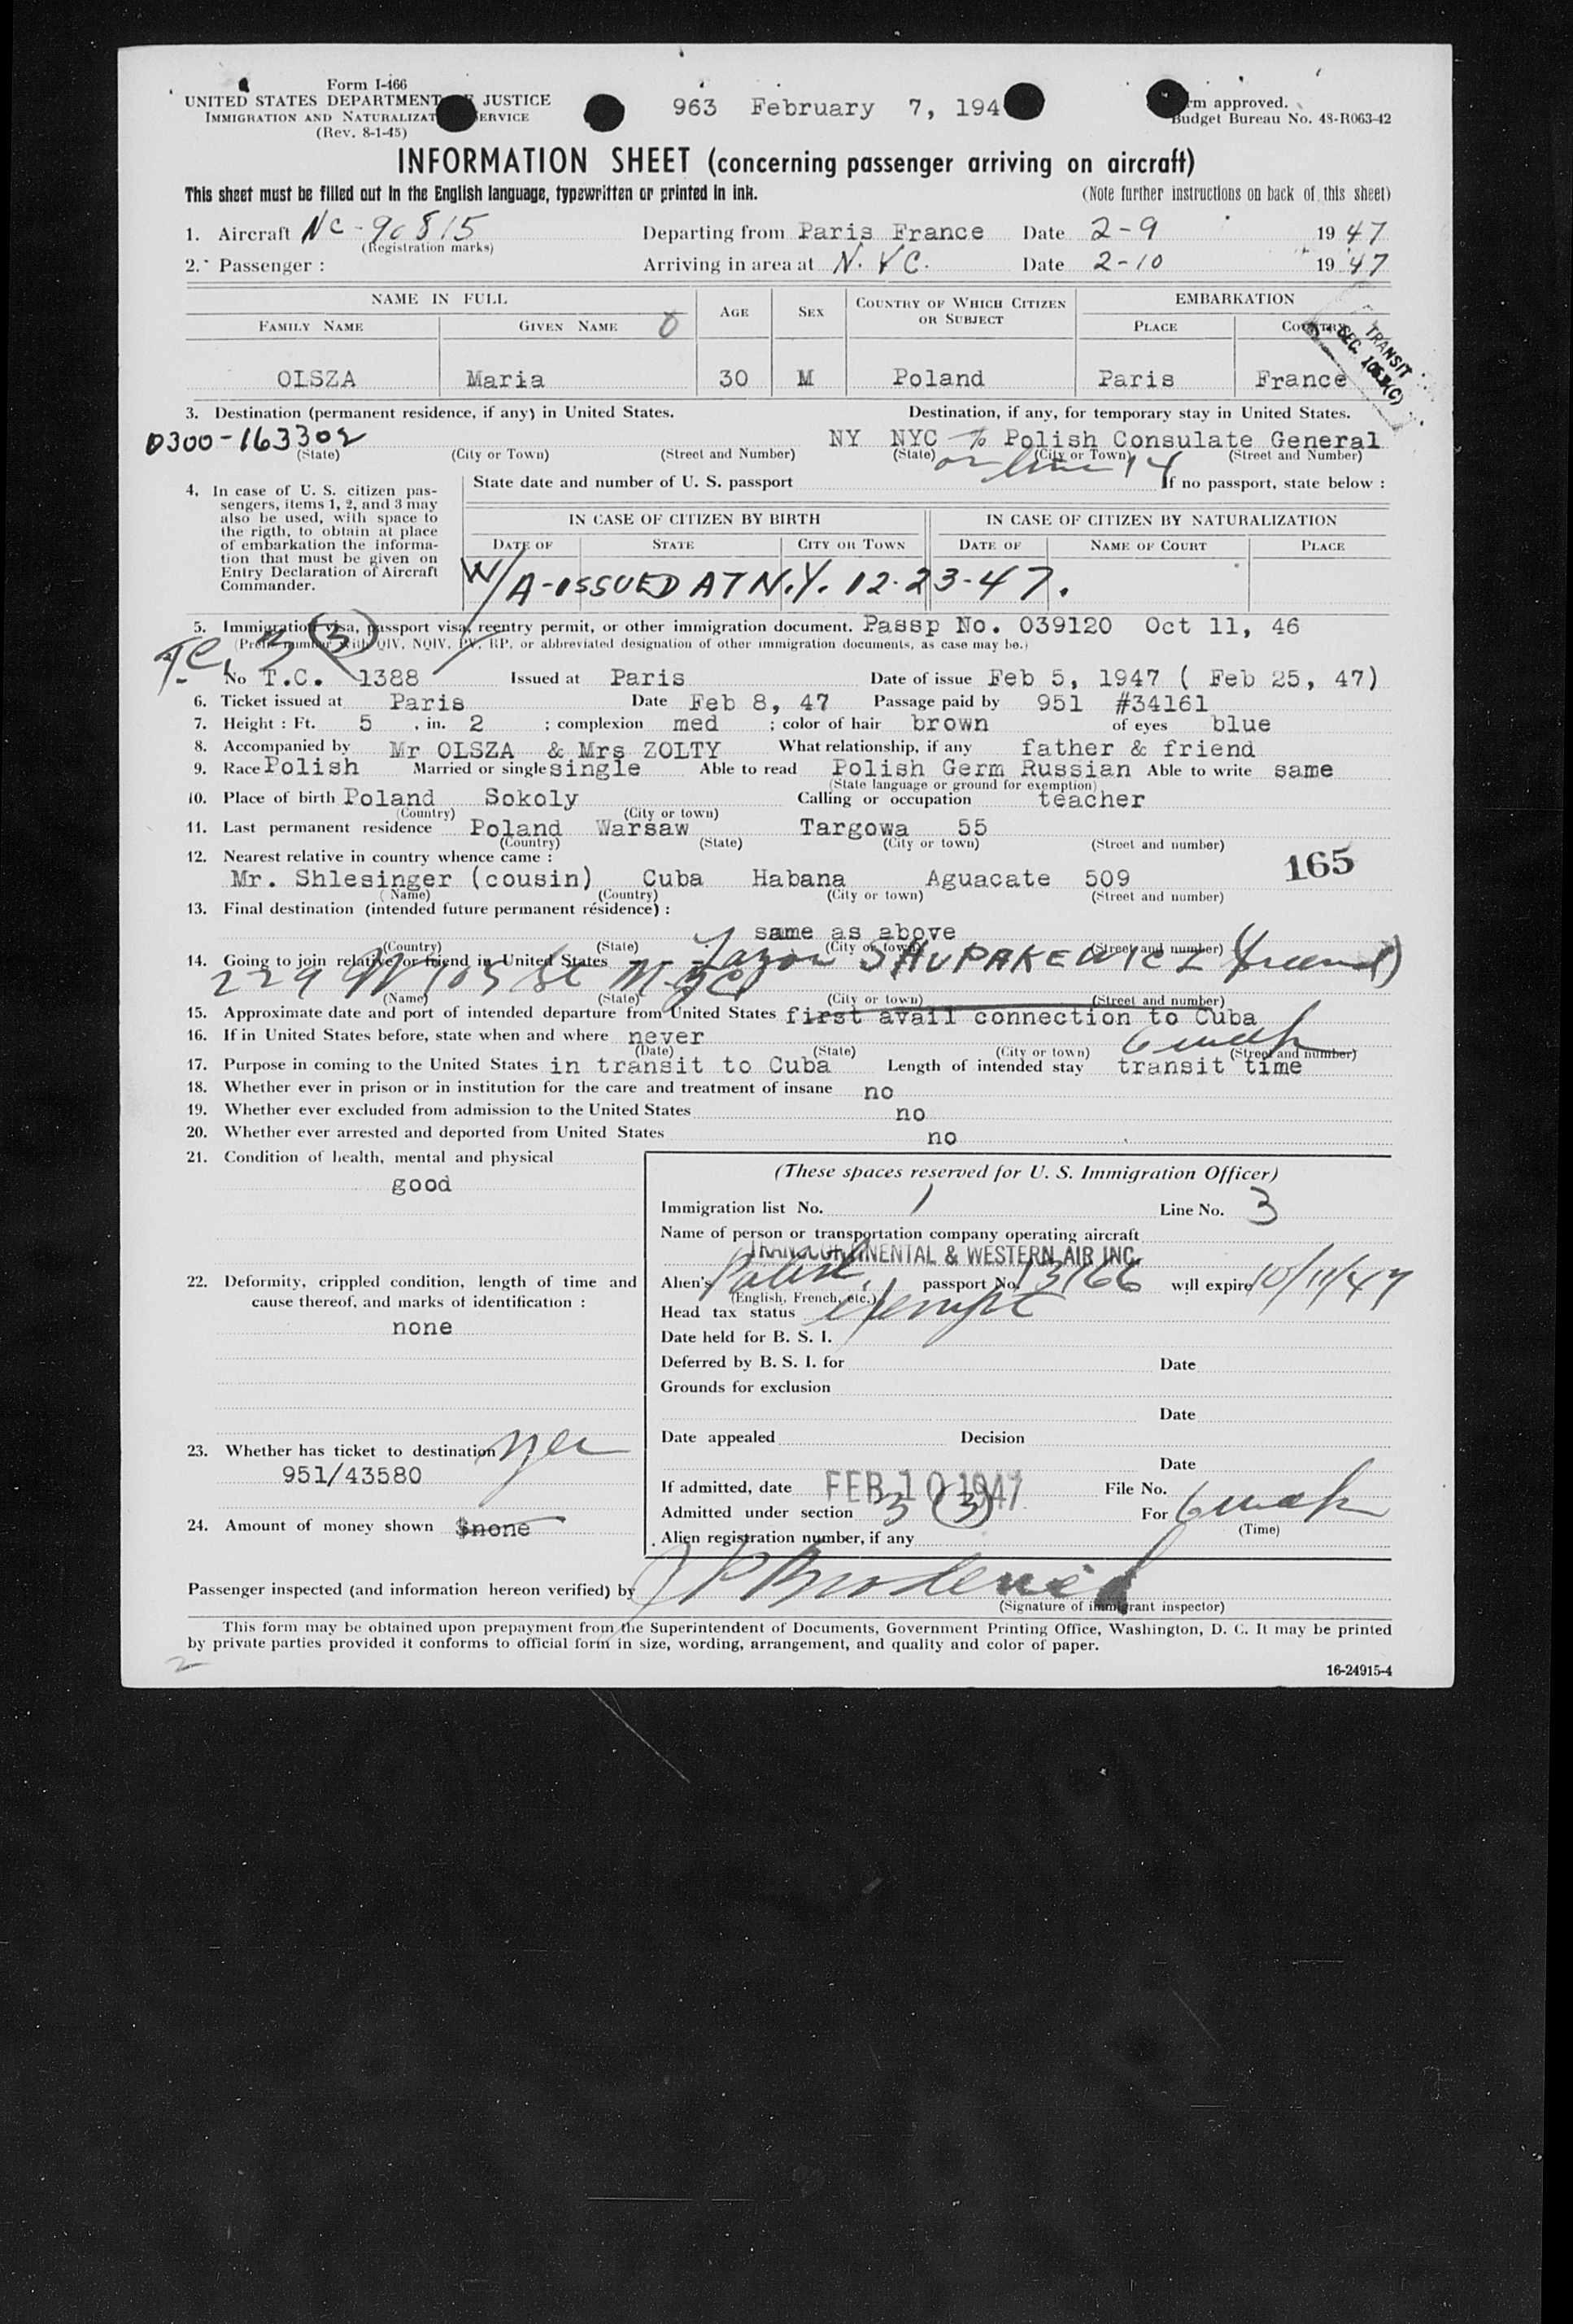 Form I-466
UNITED STATES DEPARTMENT JUSTICE
IMMIGRATION AND NATURALIZAT ERVICE
(Rev. 8-1-45)
963 February 7, 194
rm approved.
Budget Bureau No. 43-R063-42
INFORMATION SHEET (concerning passenger arriving on aircraft)
This sheet must be filled out in the English language, typewritten or printed in ink. (Note further instructions on back of this sheet)
1. Aircraft NC-90815 Departing from Paris France Date 2-9 1947
(Registration marks)
2. Passenger : Arriving in area at N.Y.C. Date 2-10 1947
NAME IN FULL AGE SEX COUNTRY OF WHICH CITIZEN OR SUBJECT EMBARKATION
FAMILY NAME GIVEN NAME PLACE COUNTRY
TRANSIT
SEC.
OLSZA Maria 30 M Poland Paris France
3. Destination (permanent residence, if any) in United States. Destination, if any, for temporary stay in United States.
0300-163302 NY NYC % Polish Consulate General
(State) (City or Town) (Street and Number) (State) (City or Town) (Street and Number)
or line 14
4. In case of U. S. citizen passengers, items 1, 2, and 3 may also be used, with space to the rigth, to obtain at place of embarkation the information that must be given on Entry Declaration of Aircraft Commander.
State date and number of U. S. passport If no passport, state below :
IN CASE OF CITIZEN BY BIRTH IN CASE OF CITIZEN BY NATURALIZATION
DATE OF STATE CITY OR TOWN DATE OF NAME OF COURT PLACE
W/A-ISSUED AT N.Y. 12-23-47.
5. Immigration visa, passport visa, reentry permit, or other immigration document. Passp No. 039120 Oct 11, 46
(Prefix number with QIV, NQIV, PV, RP, or abbreviated designation of other immigration documents, as case may be.)
T.C. 3 (3)
No T.C. 1388 Issued at Paris Date of issue Feb 5, 1947 ( Feb 25, 47)
6. Ticket issued at Paris Date Feb 8, 47 Passage paid by 951 #34161
7. Height : Ft. 5 , in. 2 ; complexion med ; color of hair brown of eyes blue
8. Accompanied by Mr OLSZA & Mrs ZOLTY What relationship, if any father & friend
9. Race Polish Married or single single Able to read Polish Germ Russian Able to write same
(State language or ground for exemption)
10. Place of birth Poland Sokoly Calling or occupation teacher
(Country) (City or town)
11. Last permanent residence Poland Warsaw Targowa 55
(Country) (State) (City or town) (Street and number)
12. Nearest relative in country whence came :
165
Mr. Shlesinger (cousin) Cuba Habana Aguacate 509
(Name) (Country) (City or town) (Street and number)
13. Final destination (intended future permanent résidence) :
same as above
(Country) (State) (City or town) (Street and number)
14. Going to join relative or friend in United States SHUPAKEWICZ (friend)
229 W 105 St N.Y.C.
(Name) (State) (City or town) (Street and number)
15. Approximate date and port of intended departure from United States first avail connection to Cuba
16. If in United States before, state when and where never
(Date) (State) (City or town) (Street and number)
17. Purpose in coming to the United States in transit to Cuba Length of intended stay transit time
18. Whether ever in prison or in institution for the care and treatment of insane no
19. Whether ever excluded from admission to the United States no
20. Whether ever arrested and deported from United States no
21. Condition of health, mental and physical
good
22. Deformity, crippled condition, length of time and cause thereof, and marks of identification :
none
23. Whether has ticket to destination yes
951/43580
24. Amount of money shown $none
(These spaces reserved for U. S. Immigration Officer)
Immigration list No. 1 Line No. 3
Name of person or transportation company operating aircraft
TRANSCONTINENTAL & WESTERN AIR INC.
Alien's Polish passport No. 13166 will expire 10/11/47
(English, French, etc.)
Head tax status exempt
Date held for B. S. I.
Deferred by B. S. I. for Date
Grounds for exclusion
Date
Date appealed Decision
Date
If admitted, date FEB 10 1947 File No.
Admitted under section 3 (3) For
(Time)
Alien registration number, if any
Passenger inspected (and information hereon verified) by
(Signature of immigrant inspector)
This form may be obtained upon prepayment from the Superintendent of Documents, Government Printing Office, Washington, D. C. It may be printed
by private parties provided it conforms to official form in size, wording, arrangement, and quality and color of paper.
2
16-24915-4